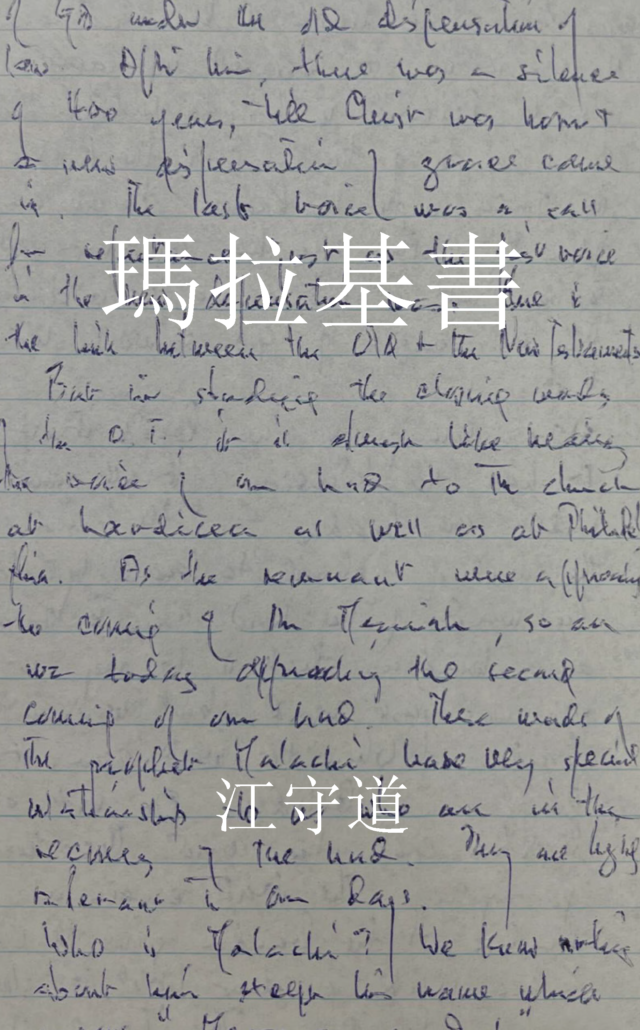 of God under the old dispensation of
law. After him, there was a silence
of 400 years, till Christ was born &
a new dispensation of grace came
in. The last voice was a call
for repentance just as the first voice
瑪拉基書
in the new dispensation was. He is
the link between the Old & the New Testaments
But in studying the closing words
of the O.T., it is always like hearing
the voice of our Lord to the church
at Laodicea as well as at Philadel
phia. As the remnant were approaching
the coming of the Messiah, so are
we today approaching the second
coming of our Lord. These words of
the prophet Malachi have very special
江守道
relationship to us who are in the
recovery of the Lord. They are highly
relevant in our days.
Who is Malachi? We know nothing
about him except his name which